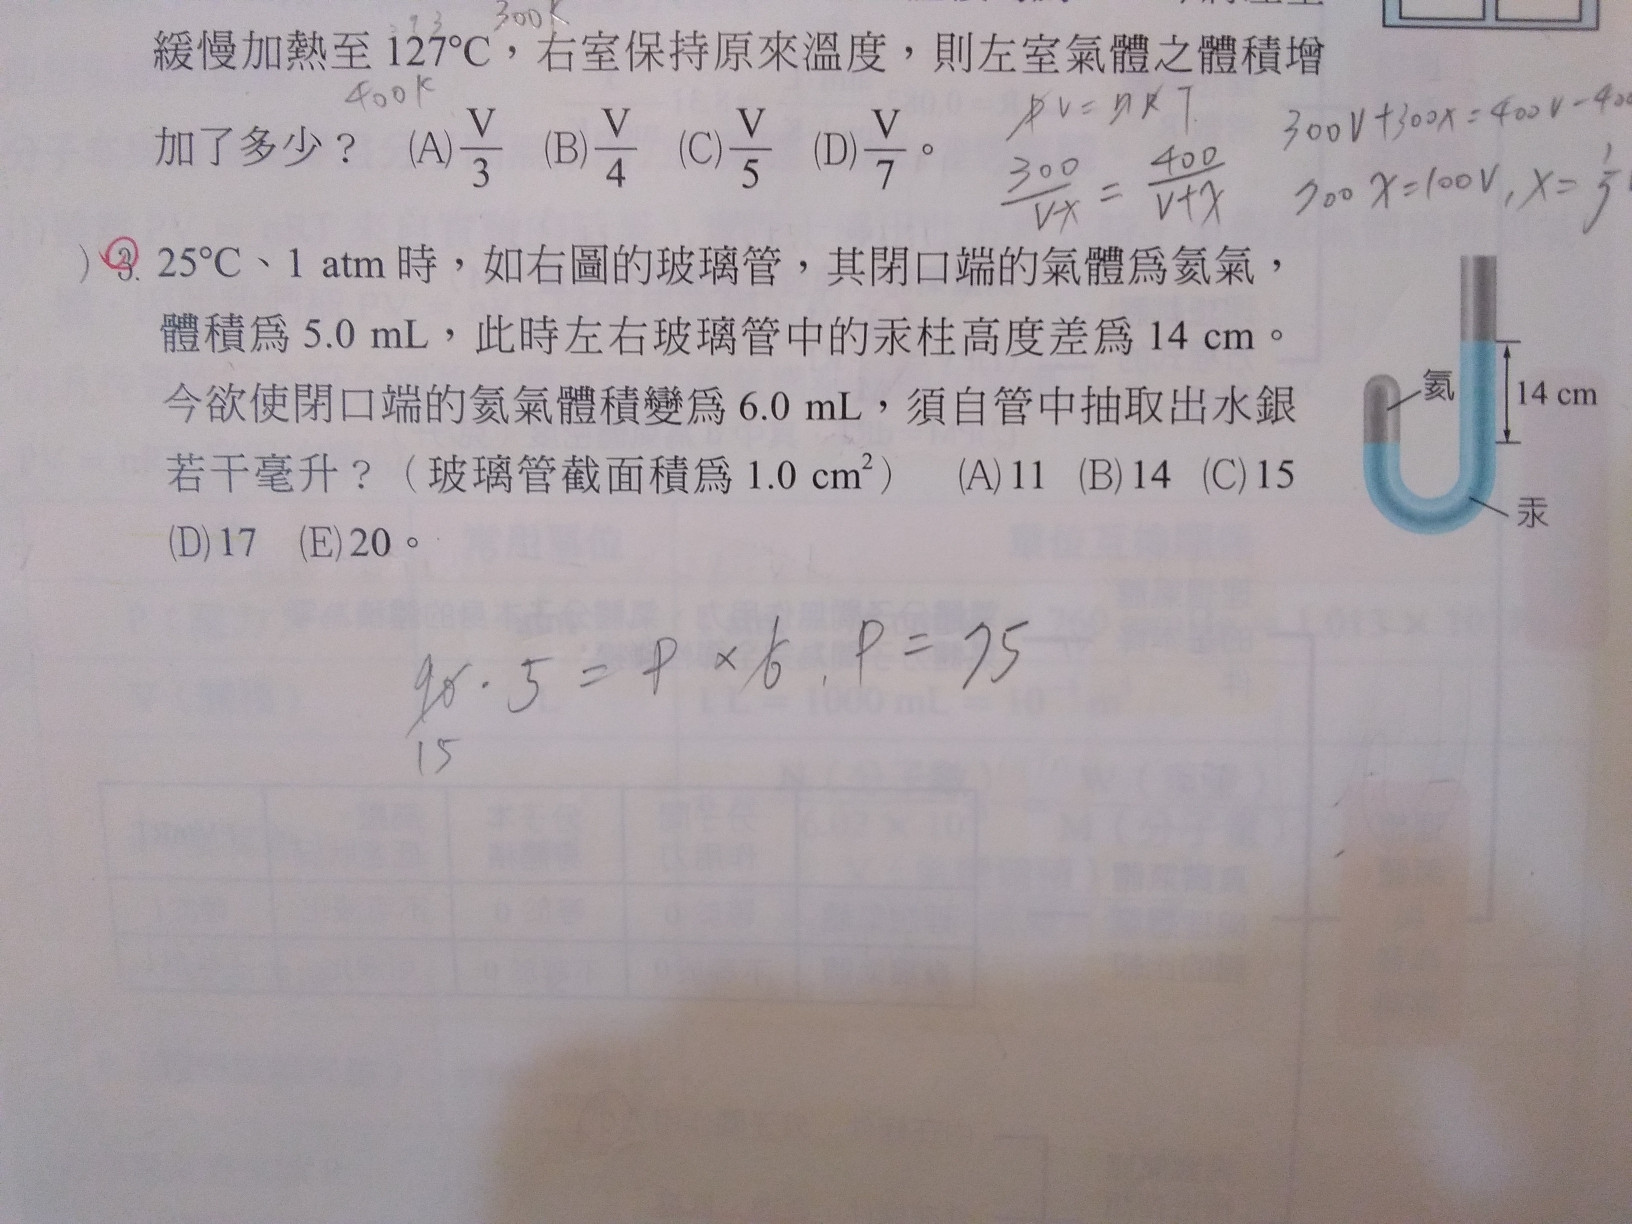 300K
緩慢加熱至 127℃,右室保持原來溫度,則左室氣體之體積增
400K
加了多少? (A) V/3 (B) V/4 (C) V/5 (D) V/7。
PV = nRT
300/V-x = 400/V+x
300V+300x=400V-400
700x=100V, x=
3. 25℃、1 atm 時,如右圖的玻璃管,其閉口端的氣體為氦氣,
體積為 5.0 mL,此時左右玻璃管中的汞柱高度差為 14 cm。
今欲使閉口端的氦氣體積變為 6.0 mL,須自管中抽取出水銀
若干毫升?(玻璃管截面積為 1.0 cm²) (A) 11 (B) 14 (C) 15
(D) 17 (E) 20。
氦
14 cm
汞
90·5=P×6, P=75
15